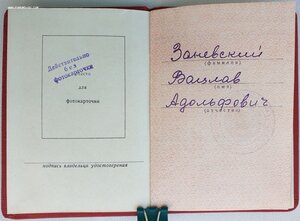 Действительно
без
фотокарточки
место
для
фотокарточки
подпись владельца удостоверения
Заневский
(фамилия)
Вацлав
(имя)
Адольфович
(отчество)